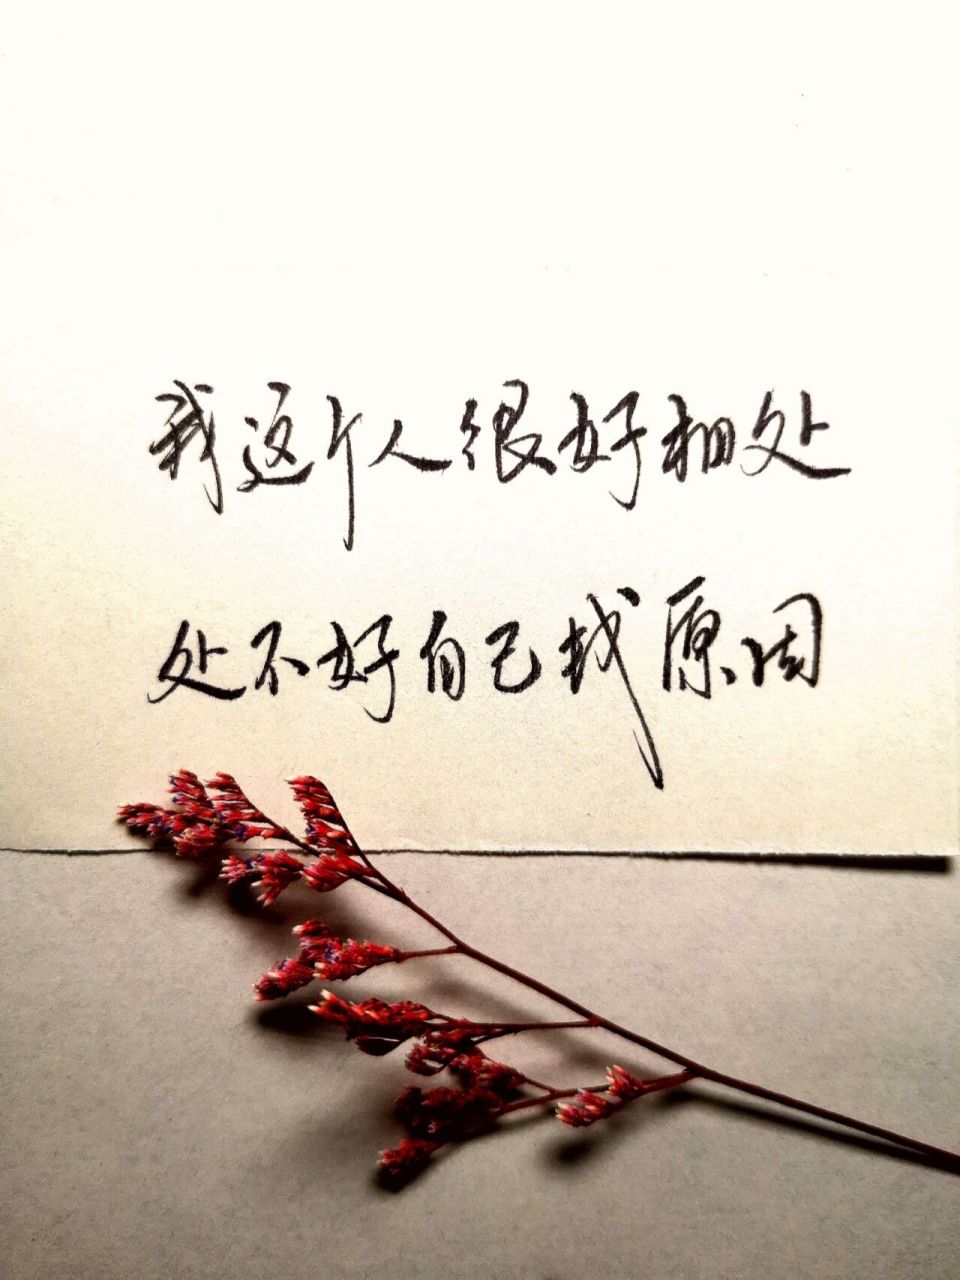 我这个人很好相处
处不好自己找原因